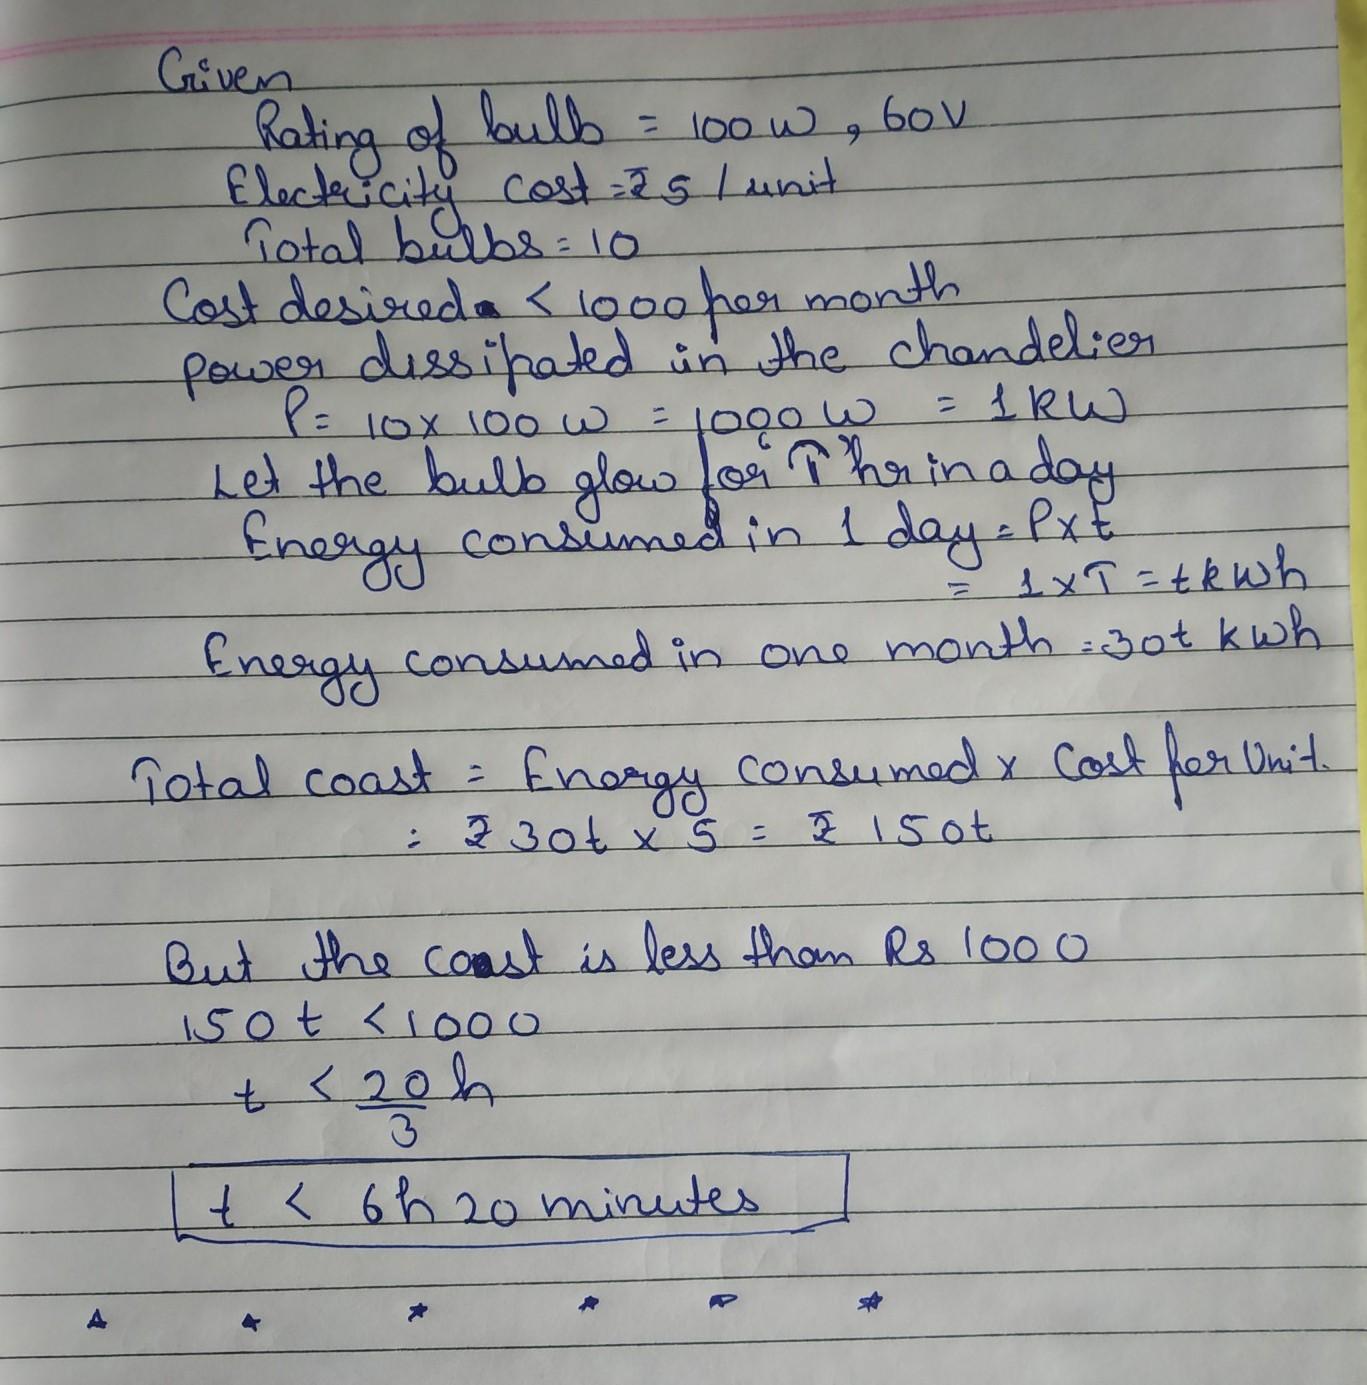 Given
Rating of bulb = 100 W, 60V
Electricity cost = ₹5 / unit
Total bulbs = 10
Cost desired < 1000 per month
power dissipated in the chandelier
P = 10 x 100 W = 1000 W = 1 kW
Let the bulb glow for 'T' hr in a day
Energy consumed in 1 day = P x t
= 1 x T = t kWh
Energy consumed in one month = 30t kWh
Total coast = Energy consumed x Cost per Unit.
= ₹ 30t x 5 = ₹ 150t
But the coast is less than Rs 1000
150 t < 1000
t < 20/3 h
t < 6h 20 minutes